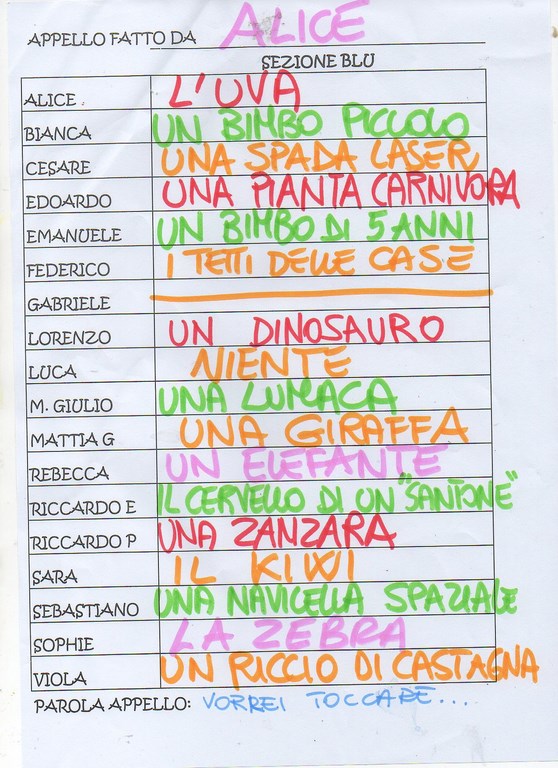 APPELLO FATTO DA ALICE
SEZIONE BLU
ALICE L'UVA
BIANCA UN BIMBO PICCOLO
CESARE UNA SPADA LASER
EDOARDO UNA PIANTA CARNIVORA
EMANUELE UN BIMBO DI 5 ANNI
FEDERICO I TETTI DELLE CASE
GABRIELE
LORENZO UN DINOSAURO
LUCA NIENTE
M. GIULIO UNA LUMACA
MATTIA G UNA GIRAFFA
REBECCA UN ELEFANTE
RICCARDO E IL CERVELLO DI UN "SANTONE"
RICCARDO P UNA ZANZARA
SARA IL KIWI
SEBASTIANO UNA NAVICELLA SPAZIALE
SOPHIE LA ZEBRA
VIOLA UN RICCIO DI CASTAGNA
PAROLA APPELLO: VORREI TOCCARE....